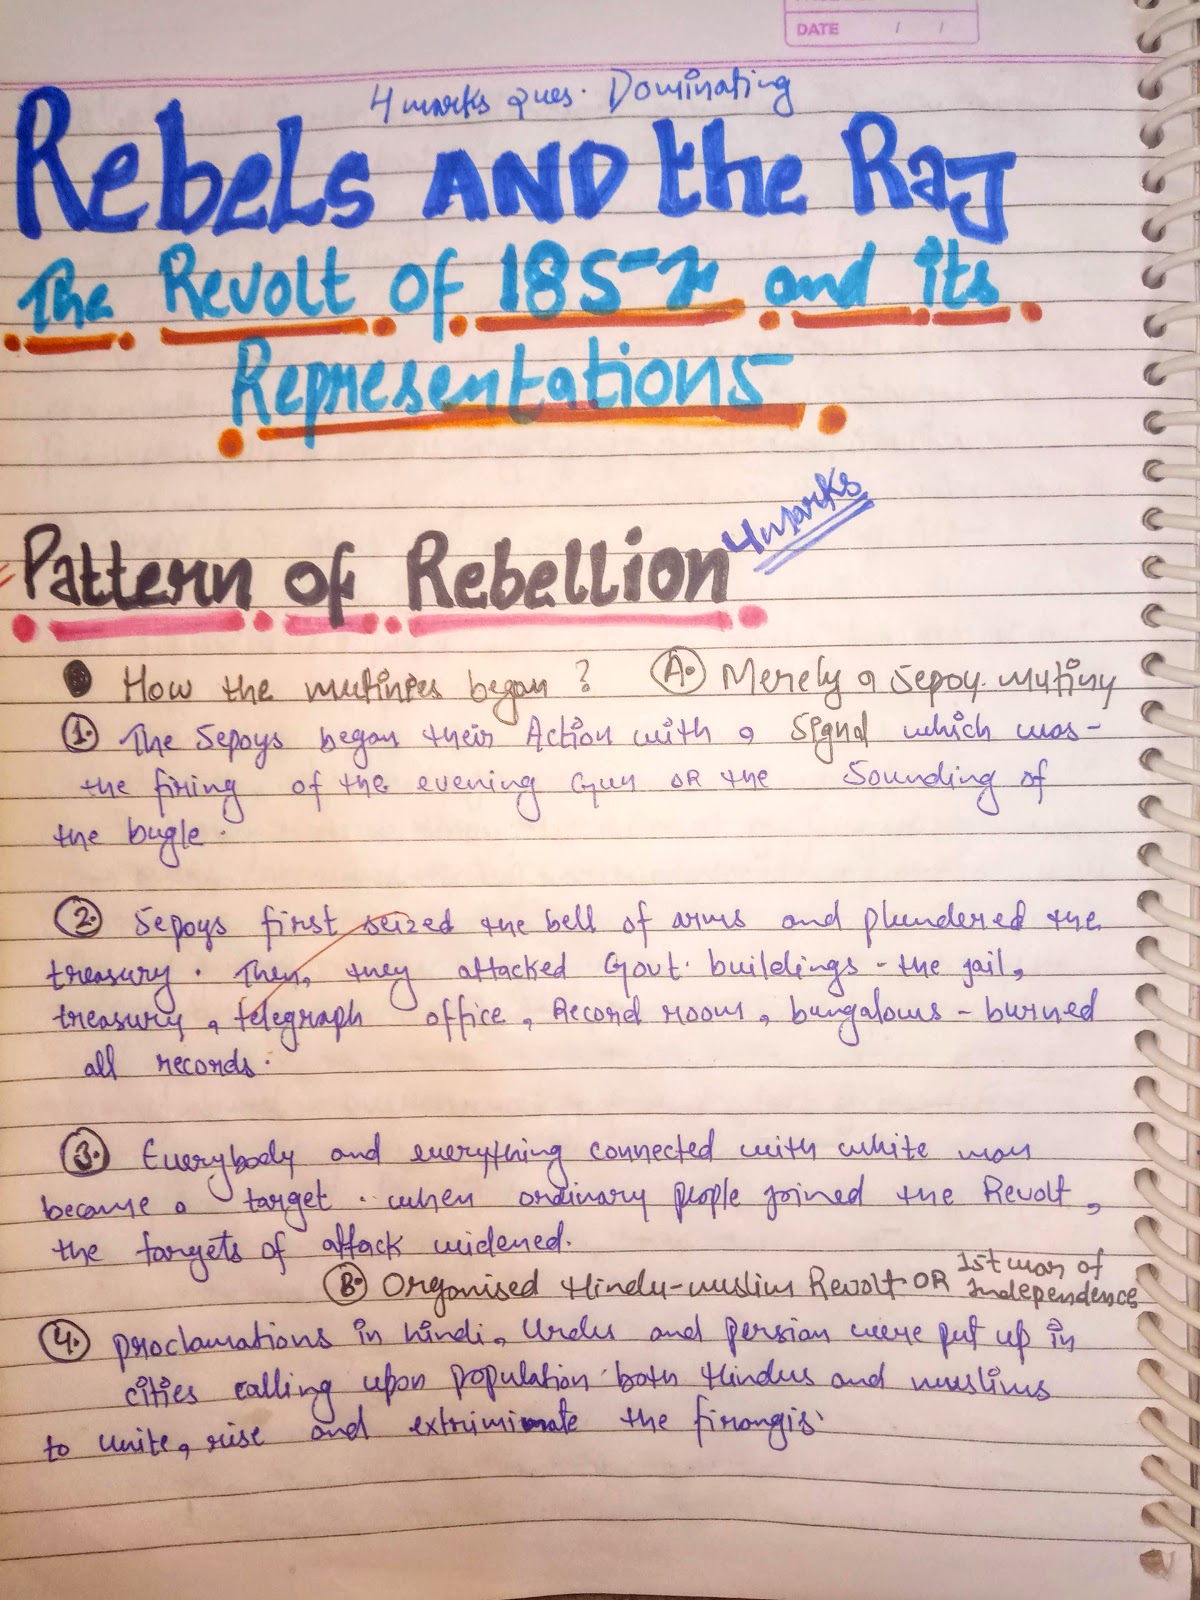 DATE / /
4 marks ques. Dominating
Rebels AND the Raj
The Revolt of 1857 and its
Representations
4 marks
Pattern of Rebellion
How the mutinies began? A. Merely a sepoy mutiny
1. The Sepoys began their Action with a Signal which was-
the firing of the evening Gun OR the Sounding of
the bugle.
2. Sepoys first seized the bell of arms and plundered the
treasury. Then, they attacked Govt. buildings - the jail,
treasury, telegraph office, Record room, bungalows - burned
all records.
3. Everybody and everything connected with white man
became a target. when ordinary people joined the Revolt,
the targets of attack widened.
B. Organised Hindu-muslim Revolt OR 1st war of
Independence
4. proclamations in hindi, Urdu and persian were put up in
cities calling upon population both Hindus and muslims
to unite, rise and extriminate the firangis.